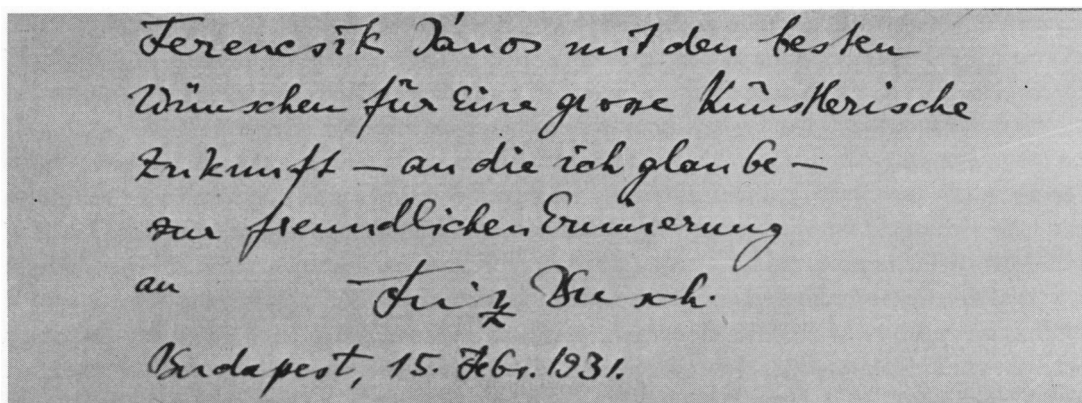 Ferencsik János mit den besten
Wünschen für eine grosse Künstlerische
Zukunft – an die ich glaube –
zur freundlichen Erinnerung
an Fritz Busch.
Budapest, 15. Febr. 1931.